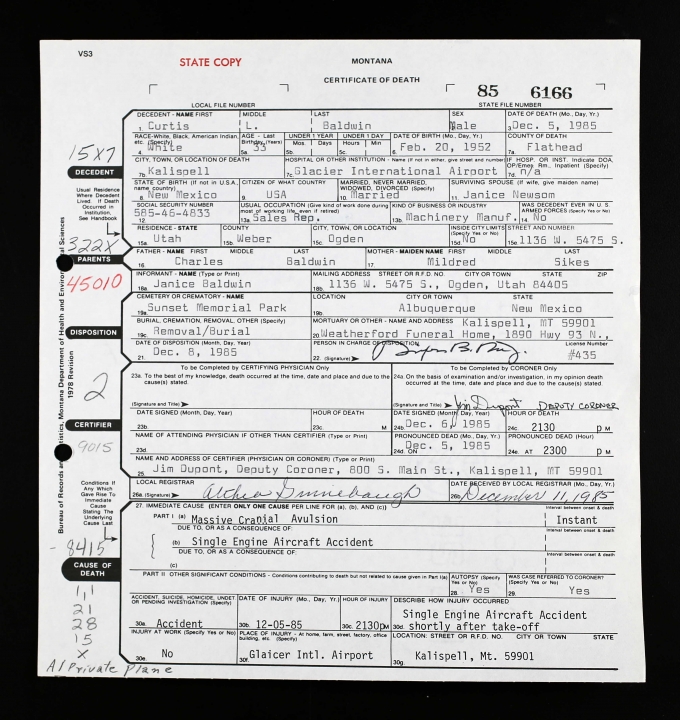 VS3
STATE COPY
MONTANA
CERTIFICATE OF DEATH
85 6166
LOCAL FILE NUMBER STATE FILE NUMBER
DECEDENT - NAME FIRST MIDDLE LAST SEX DATE OF DEATH (Mo., Day, Yr.)
1. Curtis L. Baldwin 2. Male 3. Dec. 5, 1985
RACE-White, Black, American Indian, etc. (Specify) AGE - Last Birthday (Years) UNDER 1 YEAR Mos. Days UNDER 1 DAY Hours Min DATE OF BIRTH (Mo., Day, Yr.) COUNTY OF DEATH
4. White 5a. 33 5b. 5c. 6. Feb. 20, 1952 7a. Flathead
15X7
DECEDENT
CITY, TOWN, OR LOCATION OF DEATH HOSPITAL OR OTHER INSTITUTION - Name (If not in either, give street and number) IF HOSP. OR INST. Indicate DOA, OP/Emer. Rm., Inpatient (Specify)
7b. Kalispell 7c. Glacier International Airport 7d. n/a
Usual Residence Where Decedent Lived. If Death Occurred in Institution, See Handbook
STATE OF BIRTH (If not in U.S.A., name country) CITIZEN OF WHAT COUNTRY MARRIED, NEVER MARRIED, WIDOWED, DIVORCED (Specify) SURVIVING SPOUSE (If wife, give maiden name)
8. New Mexico 9. USA 10. Married 11. Janice Newsom
SOCIAL SECURITY NUMBER USUAL OCCUPATION (Give kind of work done during most of working life, even if retired) KIND OF BUSINESS OR INDUSTRY WAS DECEDENT EVER IN U.S. ARMED FORCES (Specify Yes or No)
12. 585-46-4833 13a. Sales Rep. 13b. Machinery Manuf. 14. No
RESIDENCE - STATE COUNTY CITY, TOWN, OR LOCATION INSIDE CITY LIMITS (Specify Yes or No) STREET AND NUMBER
15a. Utah 15b. Weber 15c. Ogden 15d. No 15e. 1136 W. 5475 S.
322X
PARENTS
FATHER - NAME FIRST MIDDLE LAST MOTHER - MAIDEN NAME FIRST MIDDLE LAST
16. Charles Baldwin 17. Mildred Sikes
45010
INFORMANT - NAME (Type or Print) MAILING ADDRESS STREET OR R.F.D. NO. CITY OR TOWN STATE ZIP
18a. Janice Baldwin 18b. 1136 W. 5475 S., Ogden, Utah 84405
CEMETERY OR CREMATORY - NAME LOCATION CITY OR TOWN STATE
19a. Sunset Memorial Park 19b. Albuquerque New Mexico
DISPOSITION
BURIAL, CREMATION, REMOVAL, OTHER (Specify) MORTUARY OR - NAME AND ADDRESS Kalispell, MT 59901
19c. Removal/Burial 20. Weatherford Funeral Home, 1890 Hwy 93 N.,
DATE OF DISPOSITION (Month, Day, Year) PERSON IN CHARGE OF DISPOSITION License Number
21. Dec. 8, 1985 22. (Signature) #435
To be Completed by CERTIFYING PHYSICIAN Only To be Completed by CORONER Only
23a. To the best of my knowledge, death occurred at the time, date and place and due to the cause(s) stated. 24a. On the basis of examination and/or investigation, in my opinion death occurred at the time, date and place and due to the cause(s) stated.
2
(Signature and Title) (Signature and Title) Jim Dupont DEPUTY CORONER
CERTIFIER
DATE SIGNED (Month, Day, Year) HOUR OF DEATH DATE SIGNED (Month, Day, Year) HOUR OF DEATH
23b. 23c. M 24b. Dec. 6, 1985 24c. 2130 p M
9015
NAME OF ATTENDING PHYSICIAN IF OTHER THAN CERTIFIER (Type or Print) PRONOUNCED DEAD (Mo., Day, Yr.) PRONOUNCED DEAD (Hour)
23d. 24d. ON Dec. 5, 1985 24e. AT 2300 p M
NAME AND ADDRESS OF CERTIFIER (PHYSICIAN OR CORONER) (Type or Print)
25. Jim Dupont, Deputy Coroner, 800 S. Main St., Kalispell, MT 59901
Conditions If Any Which Gave Rise To Immediate Cause Stating The Underlying Cause Last
LOCAL REGISTRAR DATE RECEIVED BY LOCAL REGISTRAR (Mo., Day, Yr.)
26a. (Signature) 26b. December 11, 1985
27. IMMEDIATE CAUSE (ENTER ONLY ONE CAUSE PER LINE FOR (a), (b), AND (c)) Interval between onset & death
PART I (a) Massive Cranial Avulsion Instant
DUE TO, OR AS A CONSEQUENCE OF: Interval between onset & death
(b) Single Engine Aircraft Accident
8415
DUE TO, OR AS A CONSEQUENCE OF: Interval between onset & death
(c)
CAUSE OF DEATH
PART II OTHER SIGNIFICANT CONDITIONS - Conditions contributing to death but not related to cause given in Part I(a) AUTOPSY (Specify Yes or No) WAS CASE REFERRED TO CORONER?
28. Yes 29. Yes
11
21
28
15
X
ACCIDENT, SUICIDE, HOMICIDE, UNDET. OR PENDING INVESTIGATION (Specify) DATE OF INJURY (Mo., Day, Yr.) HOUR OF INJURY DESCRIBE HOW INJURY OCCURRED
Single Engine Aircraft Accident
30a. Accident 30b. 12-05-85 30c. 2130pM 30d. shortly after take-off
INJURY AT WORK (Specify Yes or No) PLACE OF INJURY - At home, farm, street, factory, office building, etc. (Specify) LOCATION: STREET OR R.F.D. NO. CITY OR TOWN STATE
30e. No 30f. Glaicer Intl. Airport 30g. Kalispell, Mt. 59901
A1 Private Plane
Bureau of Records and Statistics, Montana Department of Health and Environmental Sciences
1978 Revision